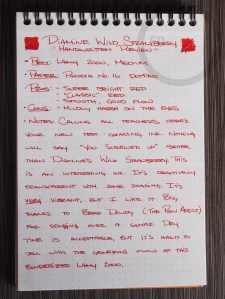 Diamine Wild Strawberry
- Handwritten Review -
• Pen: Lamy 2000, Medium
• Paper: Rhodia No. 16 DotPad
• Pros: - Super bright red
- "Classic" red
- Smooth, good flow
• Cons: - Mildly harsh on the eyes
• Notes: Calling all teachers, here's
your new test-grading ink. Nothing
will say "you screwed up" better
than Diamine's Wild Strawberry. This
is an interesting ink. It's drastically
transparent with some shading. It's
very vibrant, but I like it. Big
thanks to Brad Dowdy (The Pen Addict)
for sending over a sample. Dry
time is acceptable, but it's hard to
tell with the generous owing of this
Lamy 2000.